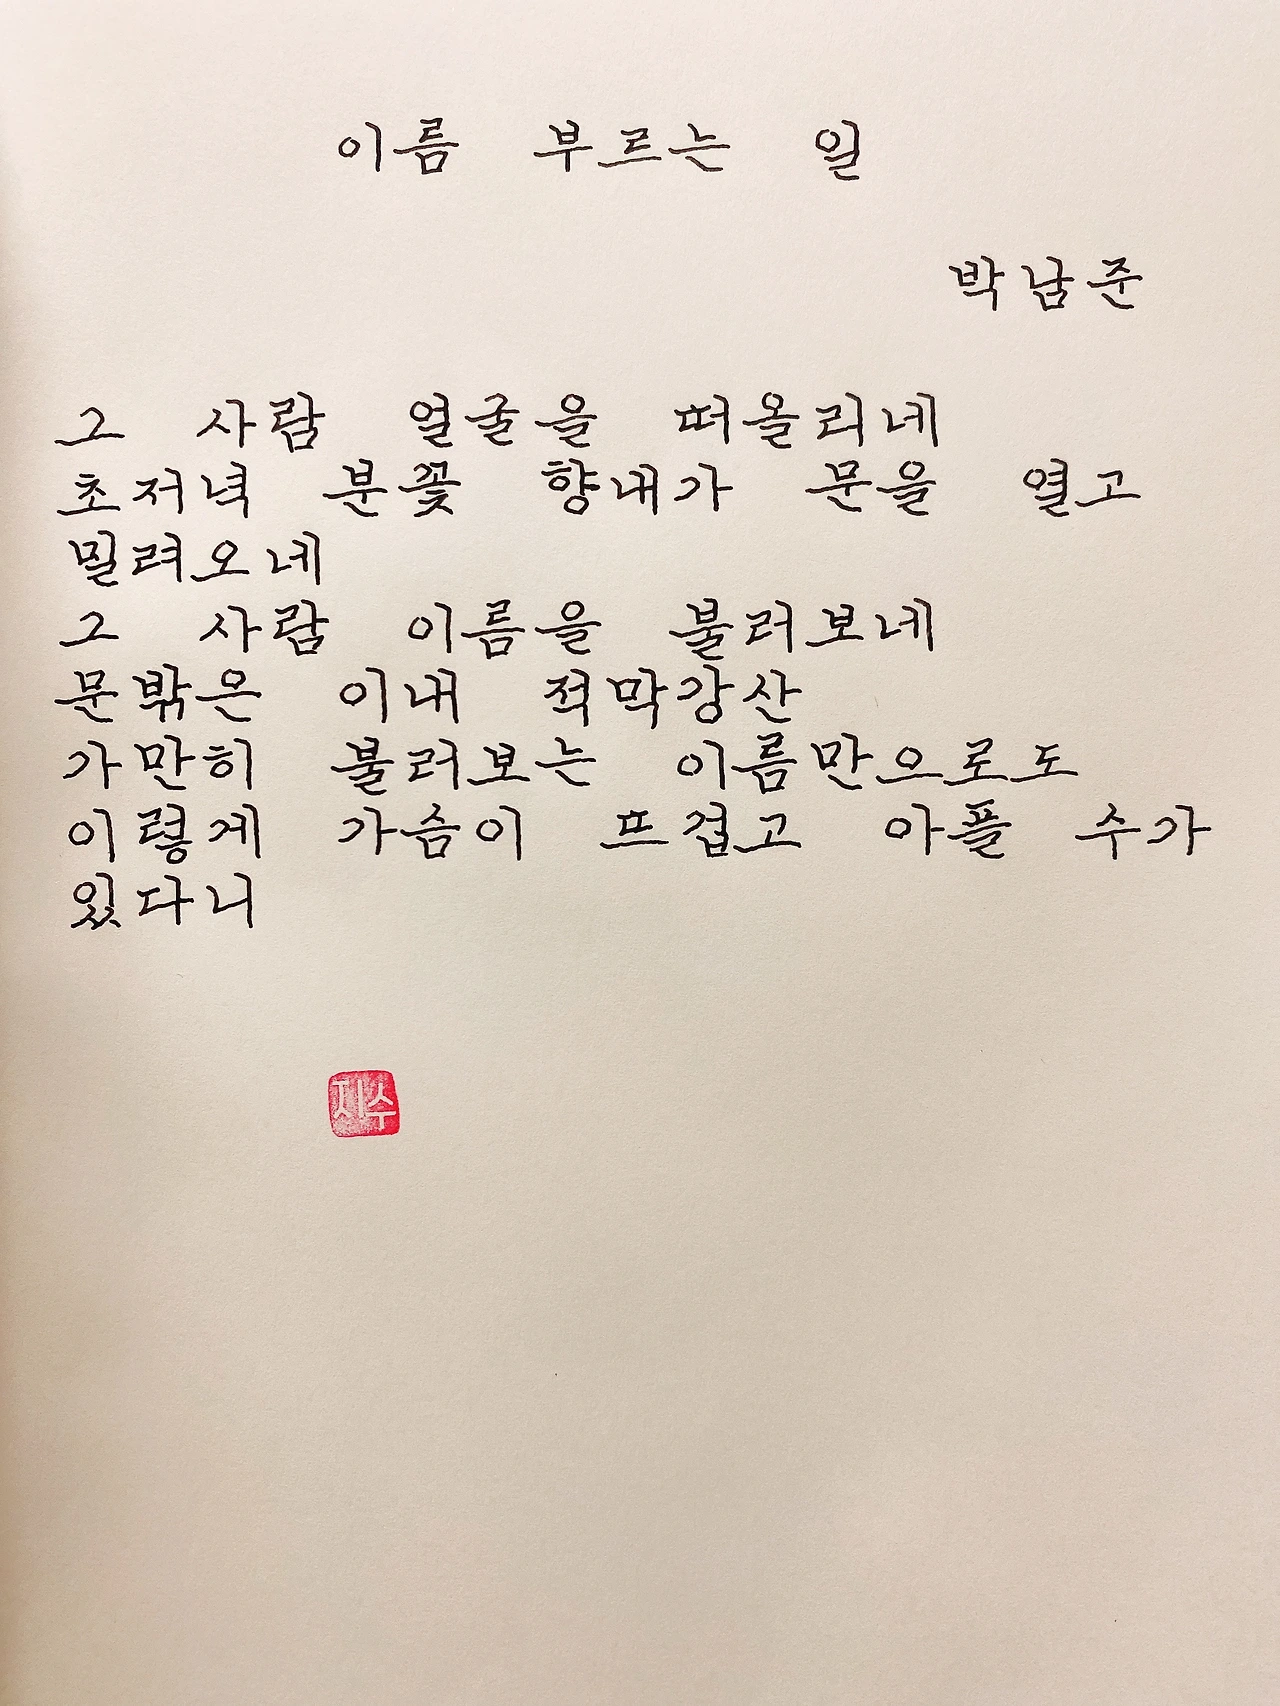 이름 부르는 일
박남준
그 사람 얼굴을 떠올리네
초저녁 분꽃 향내가 문을 열고
밀려오네
그 사람 이름을 불러보네
문밖은 이내 적막강산
가만히 불러보는 이름만으로도
이렇게 가슴이 뜨겁고 아플 수가
있다니
지수